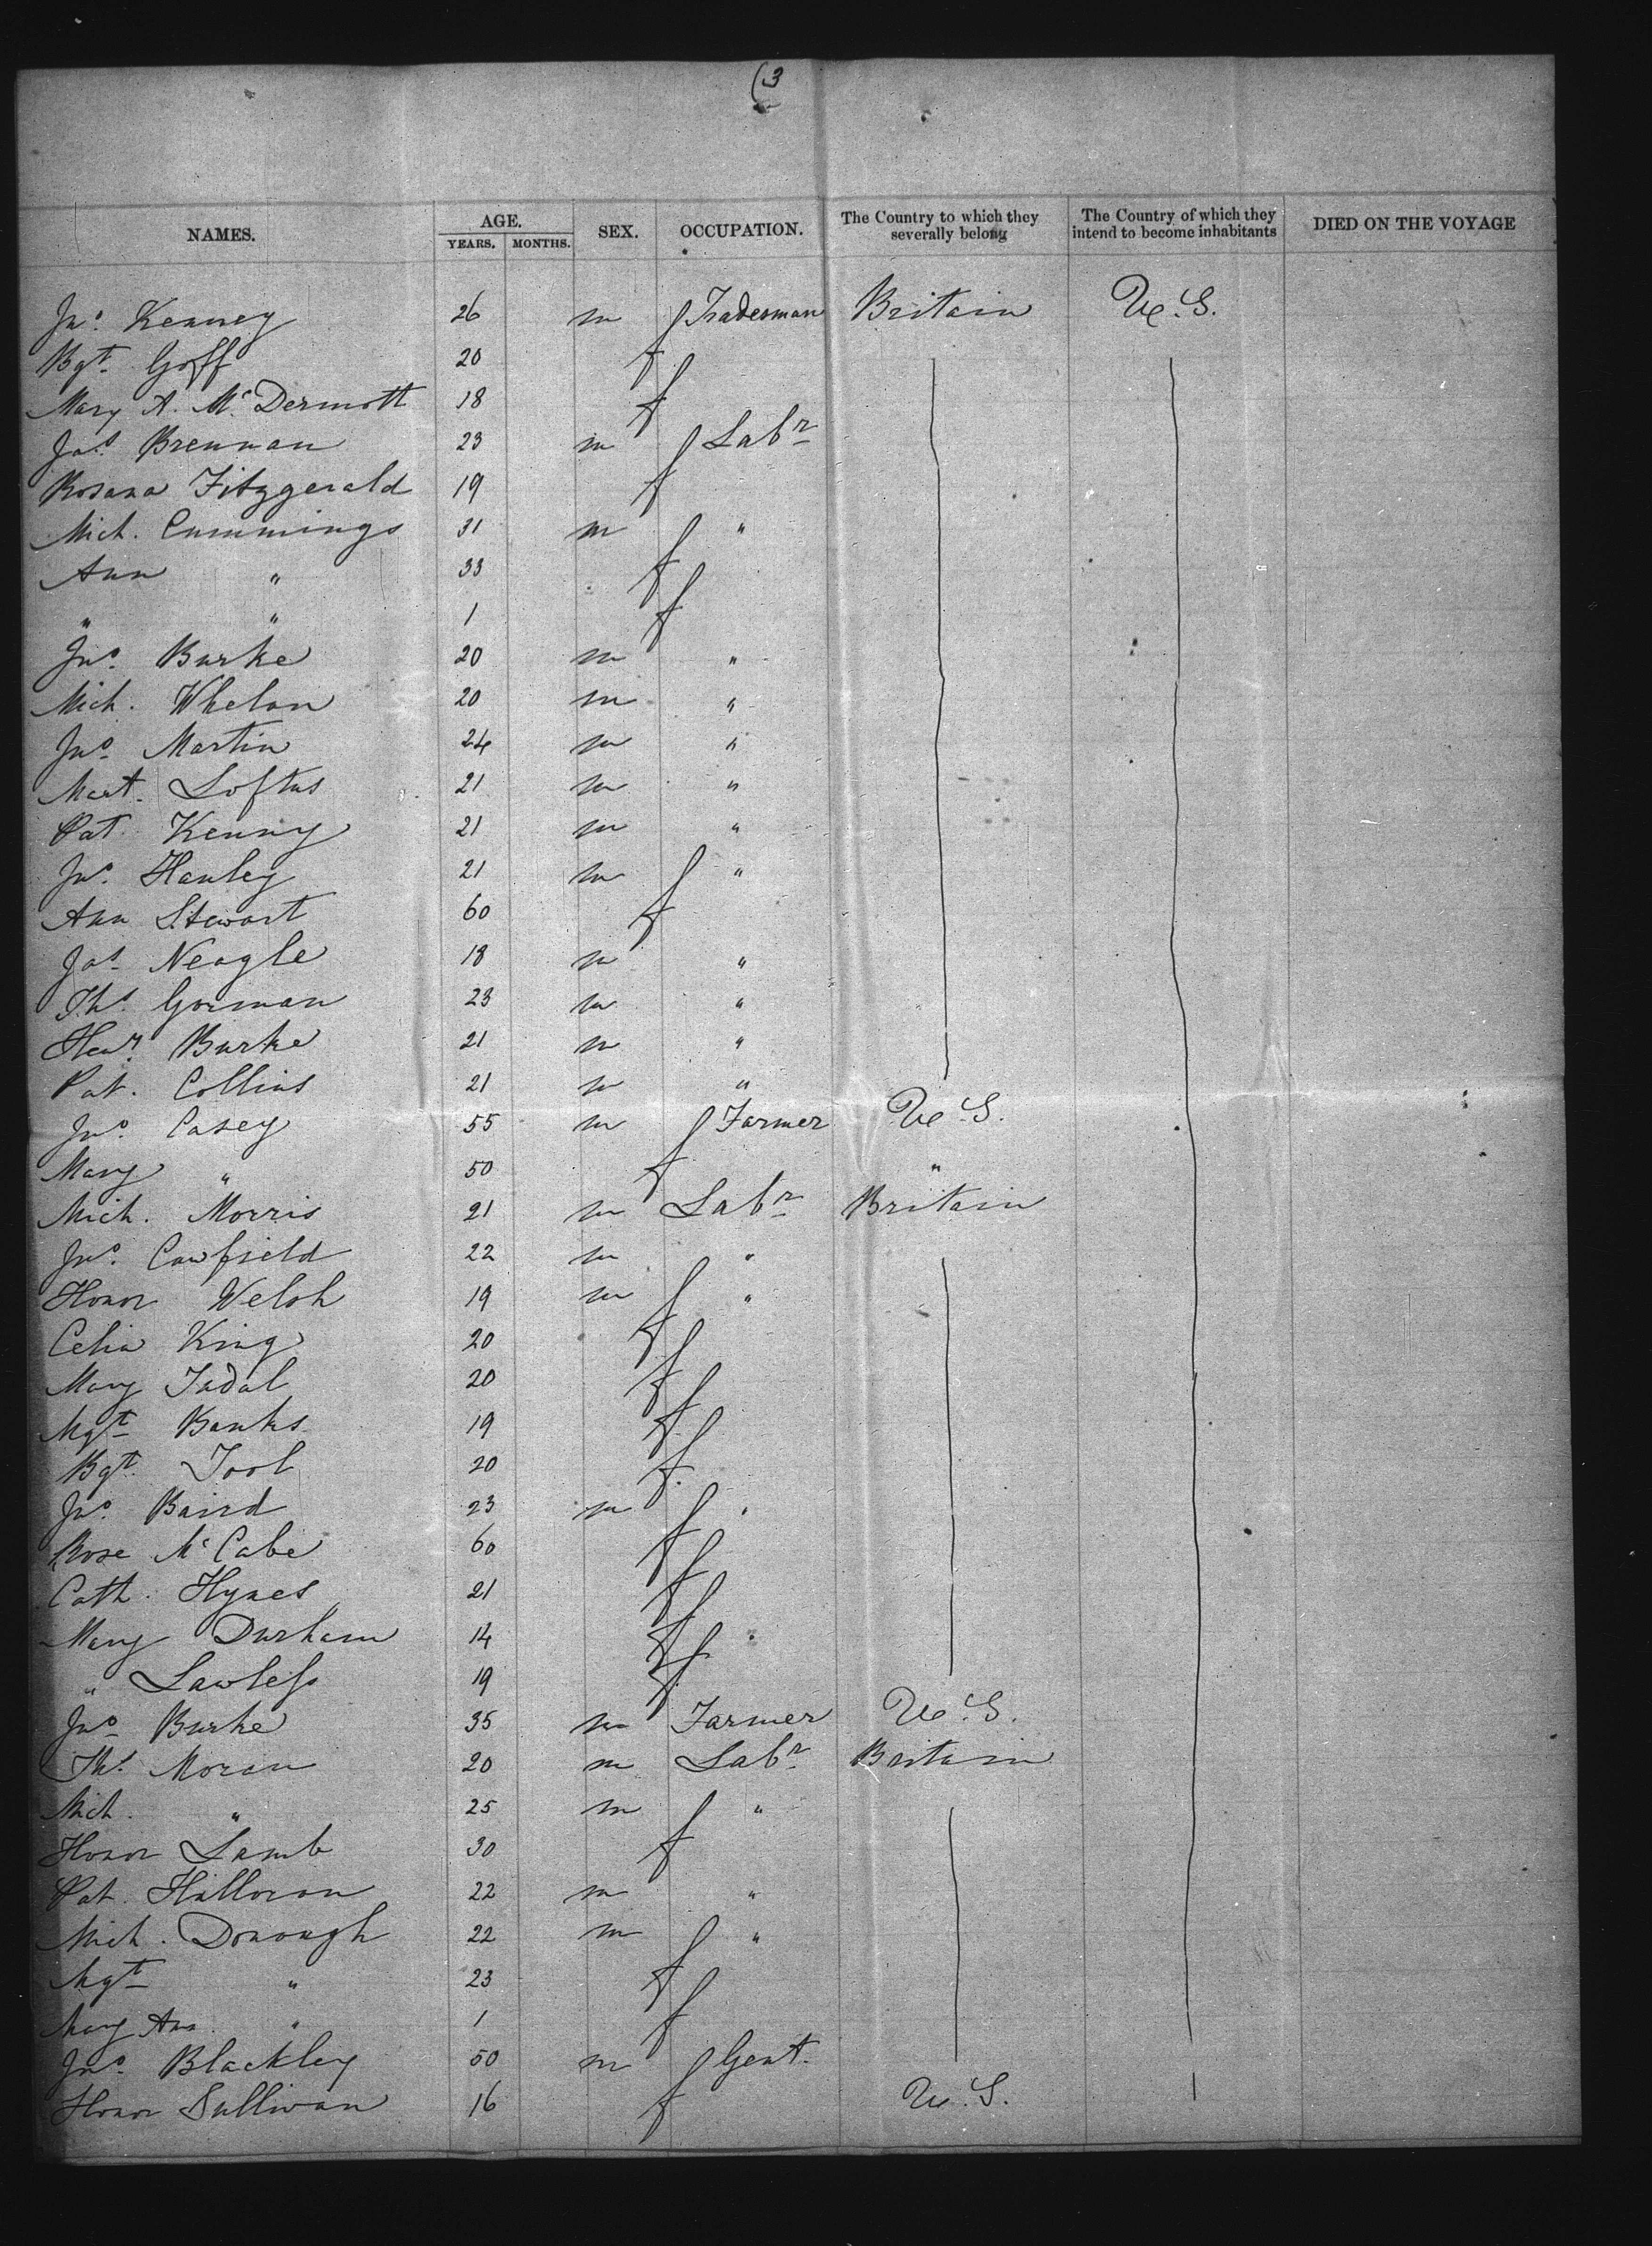 (3
NAMES. AGE. YEARS. MONTHS. SEX. OCCUPATION. The Country to which they severally belong The Country of which they intend to become inhabitants DIED ON THE VOYAGE
Jno. Kenney 26 m Tradesman Britain U.S.
Bgt. Goff 20 f
Mary A. McDermott 18 f
Jas. Brennan 23 m Labr
Rosana Fitzgerald 19 f
Mich. Cummings 31 m "
Ann " 33 f
" " 1 f
Jno. Burke 20 m "
Mich. Whelan 20 m "
Jno. Martin 24 m "
Mart. Loftus 21 m "
Pat. Kenny 21 m "
Jno. Hanley 21 m "
Ann Stewart 60 f
Jas. Neagle 18 m "
Ths. Gorman 23 m "
Heny. Burke 21 m "
Pat. Collins 21 m "
Jno. Casey 55 m Farmer U.S.
Mary " 50 f "
Mich. Morris 21 m Labr Britain
Jno. Cawfield 22 m "
Honor Welsh 19 m "
Celia King 20 f
Mary 20 f
Mgt. Banks 19 f
Bgt. Tool 20 f
Jno. Baird 23 m "
Rose McCabe 60 f
Cath. Hynes 21 f
Mary Durham 14 f
" Lawless 19 f
Jno. Burke 35 m Farmer U.S.
Ths. Moran 20 m Labr Britain
Mich. " 25 m "
Honor Lamb 30 f
Pat. Halloran 22 m "
Mich. Donough 22 m "
Mgt. " 23 f
Mary Ann " 1 f
Jno. Blackley 50 m Gent.
Honor Sullivan 16 f U.S.